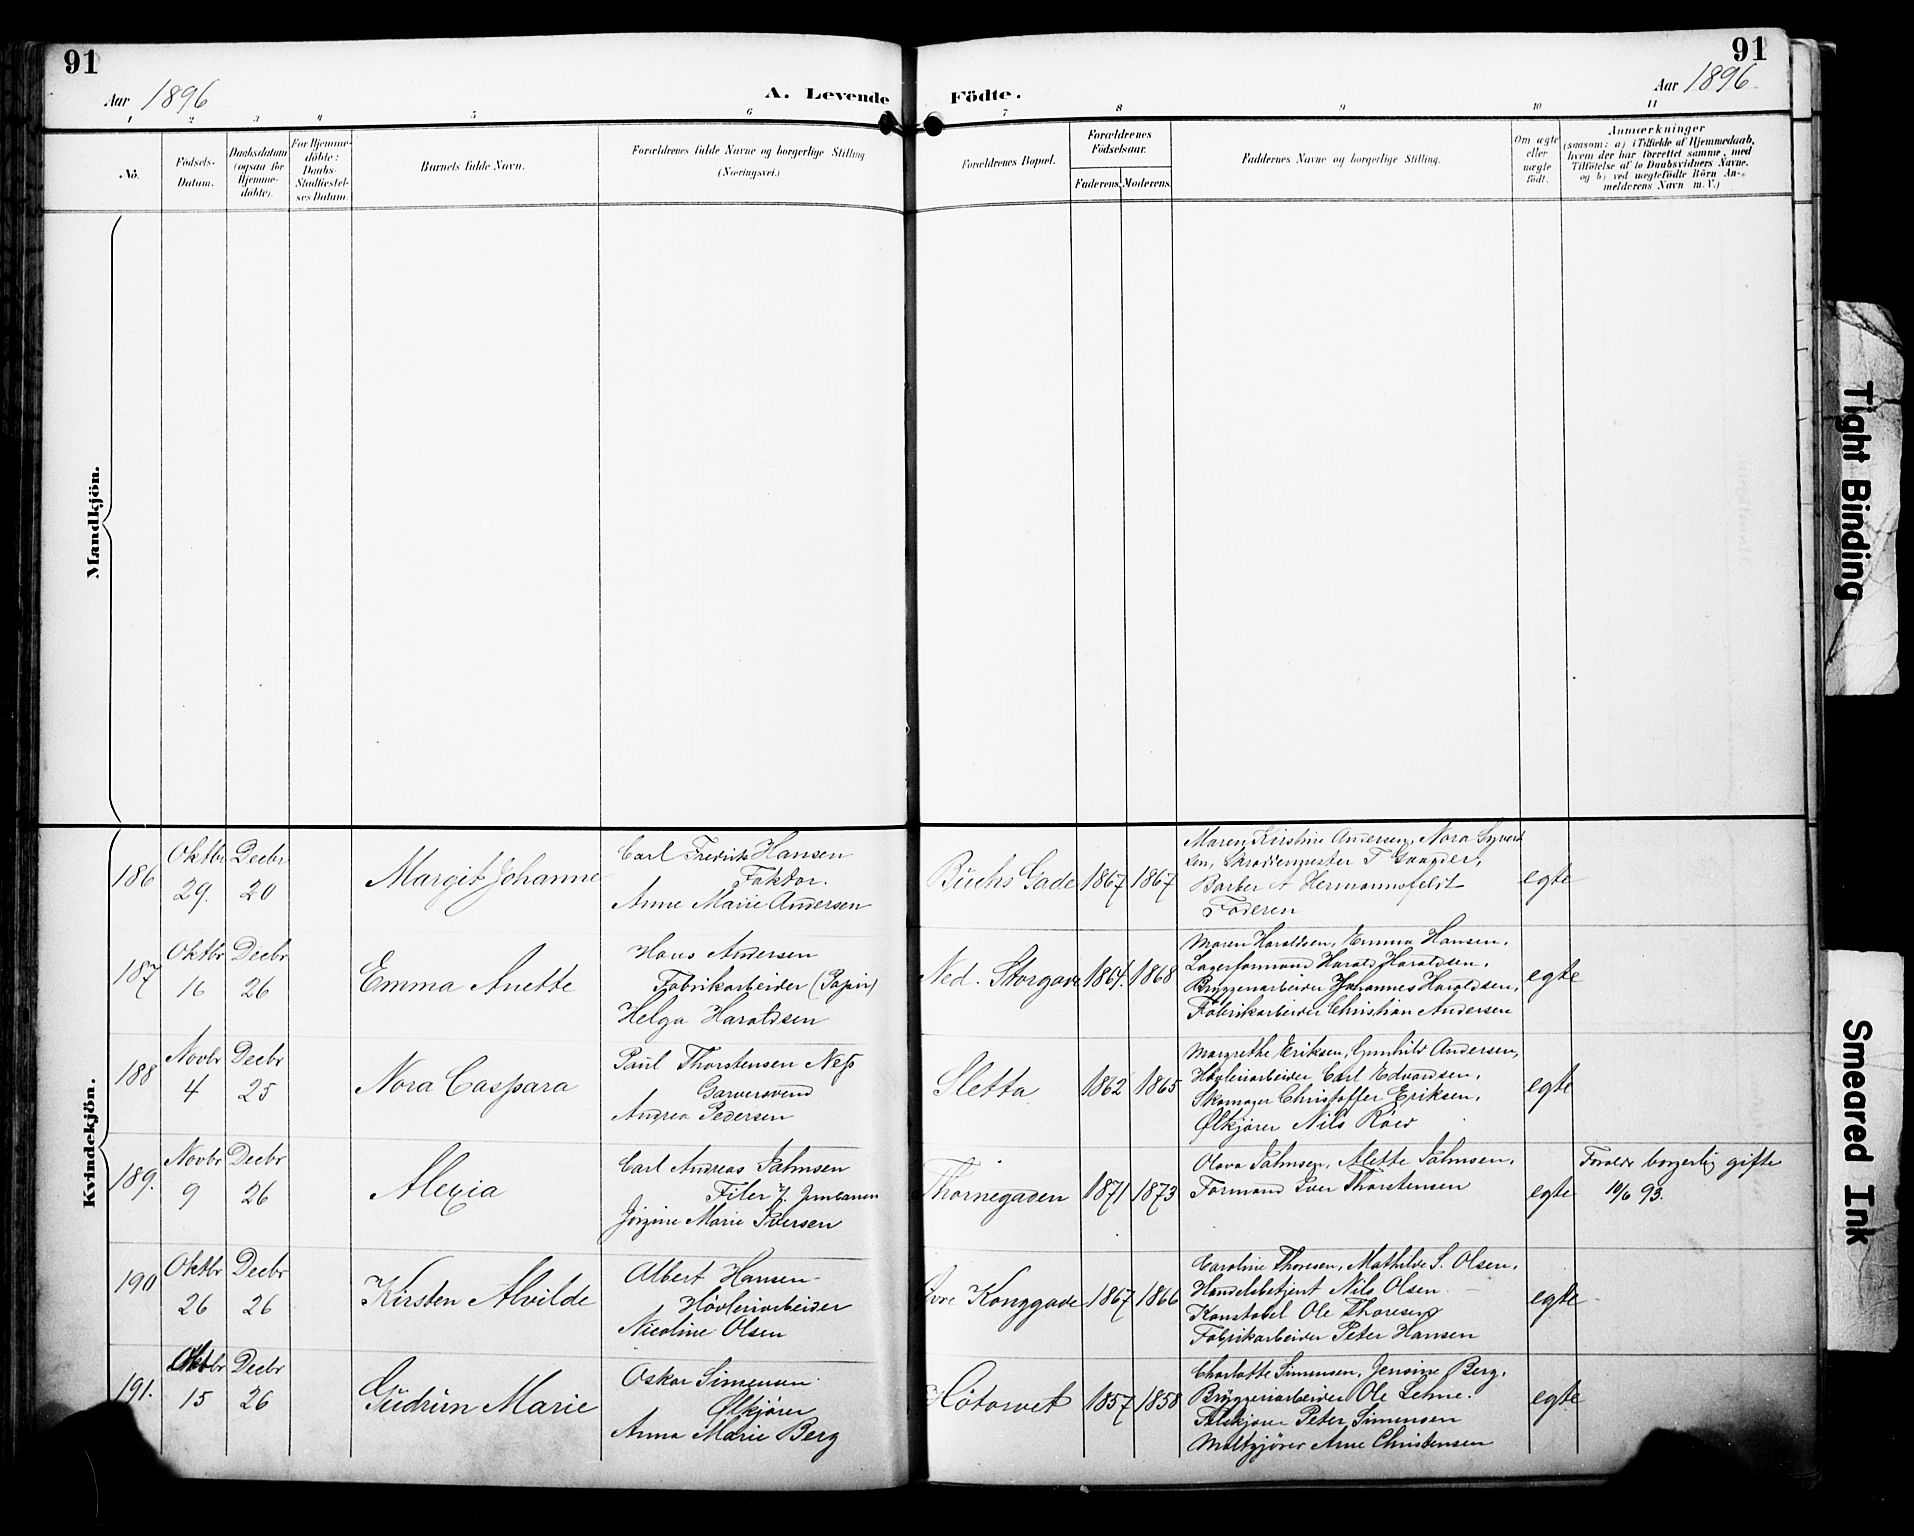 91
Aar 1896
A. Levende Födte.
91
Aar 1896.
1 2 3 4 5 6 7 8 9 10 11
No.
Fødsels-
Datum.
Daabsdatum
(ogsaa for
Hjemme-
døbte).
For Hjemme-
døbte:
Daabs-
Stadfæstel-
ses Datum.
Barnets fulde Navn.
Forældrenes fulde Navne og borgerlige Stilling
(Næringsvei.)
Forældrenes Bopæl.
Forældrenes
Födselsaar.
Faderens. Moderens.
Faddernes Navne og borgerlige Stilling.
Om ægte
eller
uægte
født.
Anmærkninger
(saasom: a) i Tilfælde af Hjemmedaab,
hvem der har forrettet samme, med
Tilföielse af to Daabsvidners Navne.
og b) ved uægtefødte Börn An-
melderens Navn m. V.)
Mandkjön.
Kvindekjön.
186
Oktbr
29.
Decbr
20
Margit Johanne
Carl Fredrik Hansen
Faktor.
Anne Marie Andersen
Buchs Gade
1867
1867
Maren Kirstine Andersen, Nora Syvert
sen, Skræddermester T Gaarder,
Barber A Hermannsfeldt
Faderen
egte
187
Oktbr
16
Decbr
26
Emma Anette
Hans Andersen
Fabrikarbeider (Papir)
Helga Haraldsen
Ned. Storgade
1864.
1868
Maren Haraldsen, Emma Hansen,
Lagerformand Harald Haraldsen,
Bryggeriarbeider Johannes Haraldsen,
Fabrikarbeider Christian Andersen
egte
188
Novbr
4
Decbr
25
Nora Caspara
Paul Thorstensen Ness
Garversvend
Andrea Pedersen
Sletta
1862
1865
Margrethe Eriksen, Gunhild Andersen,
Høvleriarbeider Carl Edvardsen,
Skomager Christoffer Eriksen,
Ølkjører Nils Röed
egte
189.
Novbr
9
Decbr
26
Alexia
Carl Andreas Palmsen
Filer v. Jernbanen
Jørgine Marie Iversen
Thornegaden
1871
1873
Olava Palmsen, Alette Palmsen,
Formand Iver Thorstensen
egte
Foreldr borgerlig gifte
10/6 93.
190
Oktbr
26
Decbr
26
Kirsten Alvilde
Albert Hansen
Høvleriarbeider
Nicoline Olsen
Övre Konggade
1867
1866
Caroline Thoresen, Mathilde S. Olsen,
Handelsbetjent Nils Olsen
Konstabel Ole Thoresen
Fabrikarbeider Peter Hansen
egte
191.
Oktbr
15
Decbr
26
Gudrun Marie
Oskar Simensen
Ølkjører
Anna Marie Berg
Høtorvet
1857
1858
Charlotte Simensen, Jensine Berg,
Bryggeriarbeider Ole Lehne.
Peter Simensen
Maltgjører Arne Christensen
egte
Tight Binding
Smeared Ink